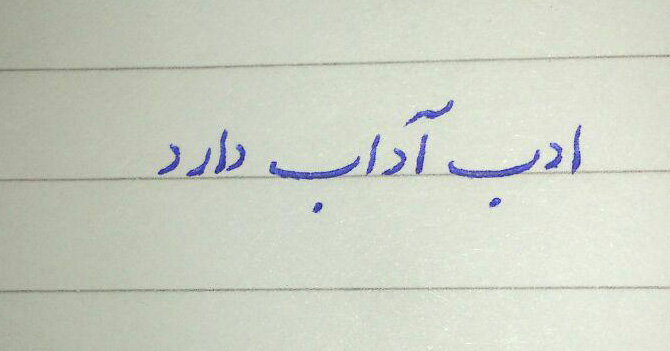 ادب آداب دارد